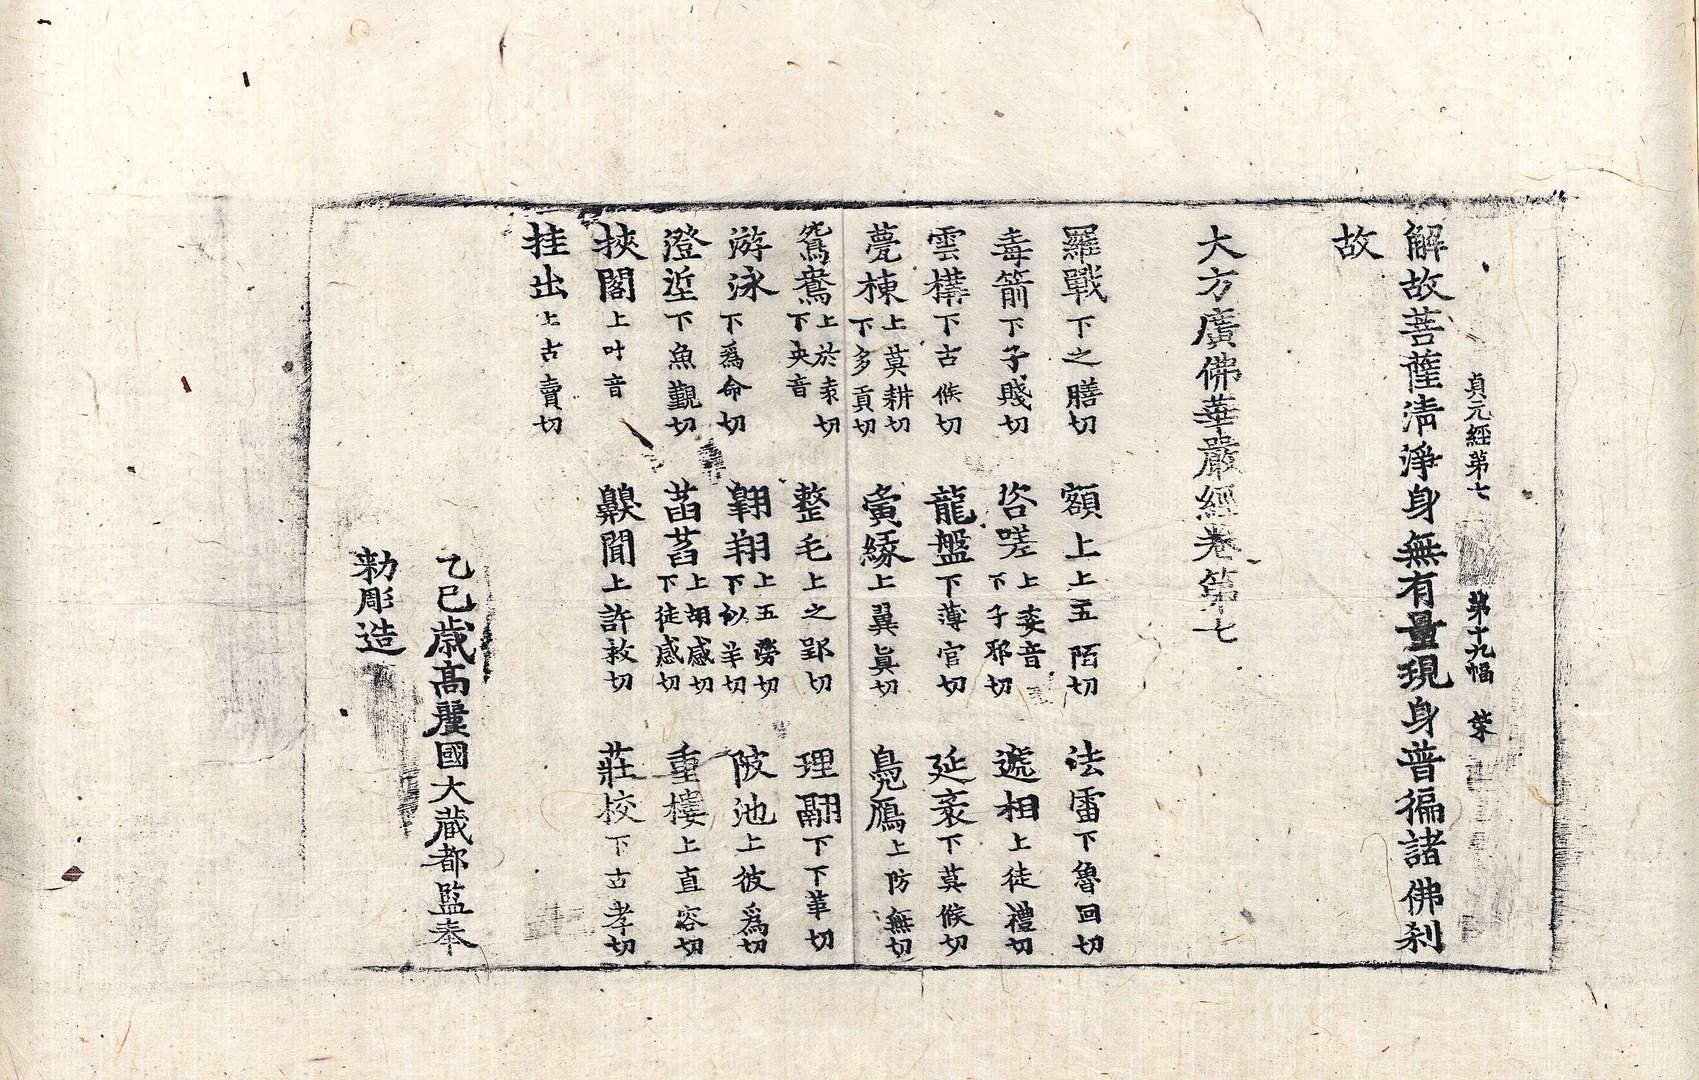 貞元經第七 第十九幅 柰
解故菩薩清淨身無有量現身普徧諸佛刹
故
大方廣佛華嚴經卷第七
羅戰下之膳切 額上上五陌切 法雷下魯回切
毒箭下子賤切 咨嗟上姿音下子邪切 遞相上徒禮切
雲構下古候切 龍盤下薄官切 延袤下莫候切
甍棟上莫耕切下多貢切 夤緣上翼眞切 鳧鴈上防無切
鴛鴦上於袁切下央音 整毛上之郢切 理翮下下革切
游泳下爲命切 翺翔上五勞切下似羊切 陂池上彼爲切
澄垽下魚覲切 菡萏上胡感切下徒感切 重樓上直容切
挾閣上叶音 齅聞上許救切 莊校下古孝切
挂出上古賣切
乙巳歲高麗國大藏都監奉
勅彫造